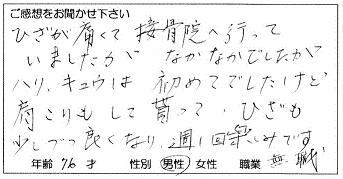 ご感想をお聞かせ下さい
ひざが痛くて接骨院へ行って
いましたが なかなかでしたが
ハリ、キュウは 初めてでしたけど
肩こりもして貰って、ひざも
少しづつ良くなり、週1回楽しみです
年齢 76 才 性別 男性 女性 職業 無職